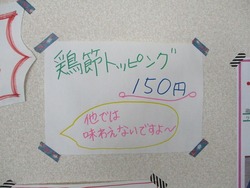 鶏節トッピング
150円
他では
味わえないですよ～